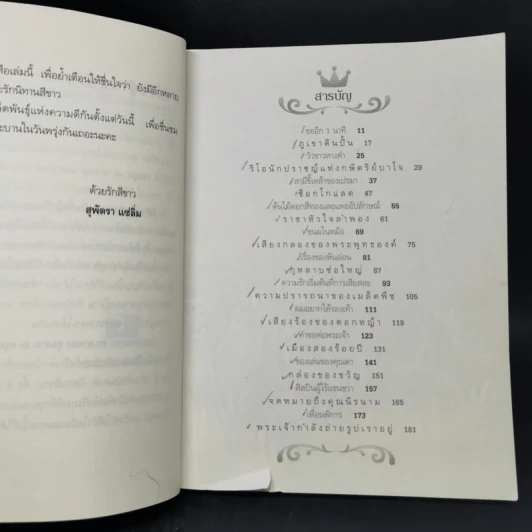 สือเล่มนี้ เพื่อย้ำเตือนให้ชื่นใจว่า ยังมีอีกหลาย
ะรักนิทานสีขาว
ล็ดพันธุ์แห่งความดีกันตั้งแต่วันนี้ เพื่อชื่นชม
ะบานในวันพรุ่งกันเถอะนะคะ
ด้วยรักสีขาว
สุพัตรา แซ่ลิ่ม
สารบัญ
ขออีก 5 นาที 11
ภูเขาดินปั้น 17
วัวขาวหางดำ 25
ริโอนักปราชญ์แห่งกษัตริย์บาโจ 29
สามีขี้เหล้าของเปรมา 37
ช็อกโกแลต 47
ต้นไม้ดอกสีทองและแพะอัปลักษณ์ 55
ราชาหัวใจลำพอง 61
ขนมในหม้อ 69
เสียงกลองของพระพุทธองค์ 75
เรื่องของหินอ่อน 81
กุหลาบช่อใหญ่ 87
ความรักเริ่มต้นที่การเสียสละ 93
ความปรารถนาของเมล็ดพืช 105
ผมอยากได้รองเท้า 111
เสียงร้องของดอกหญ้า 119
คำขอต่อพระเจ้า 123
เมืองสองร้อยปี 131
ของเล่นของคุณตา 141
กล่องของขวัญ 151
ศิลปินผู้ไร้แขนขวา 157
จดหมายถึงคุณนิรนาม 165
เพื่อนพิการ 173
พระเจ้ากำลังถ่ายรูปเราอยู่ 181